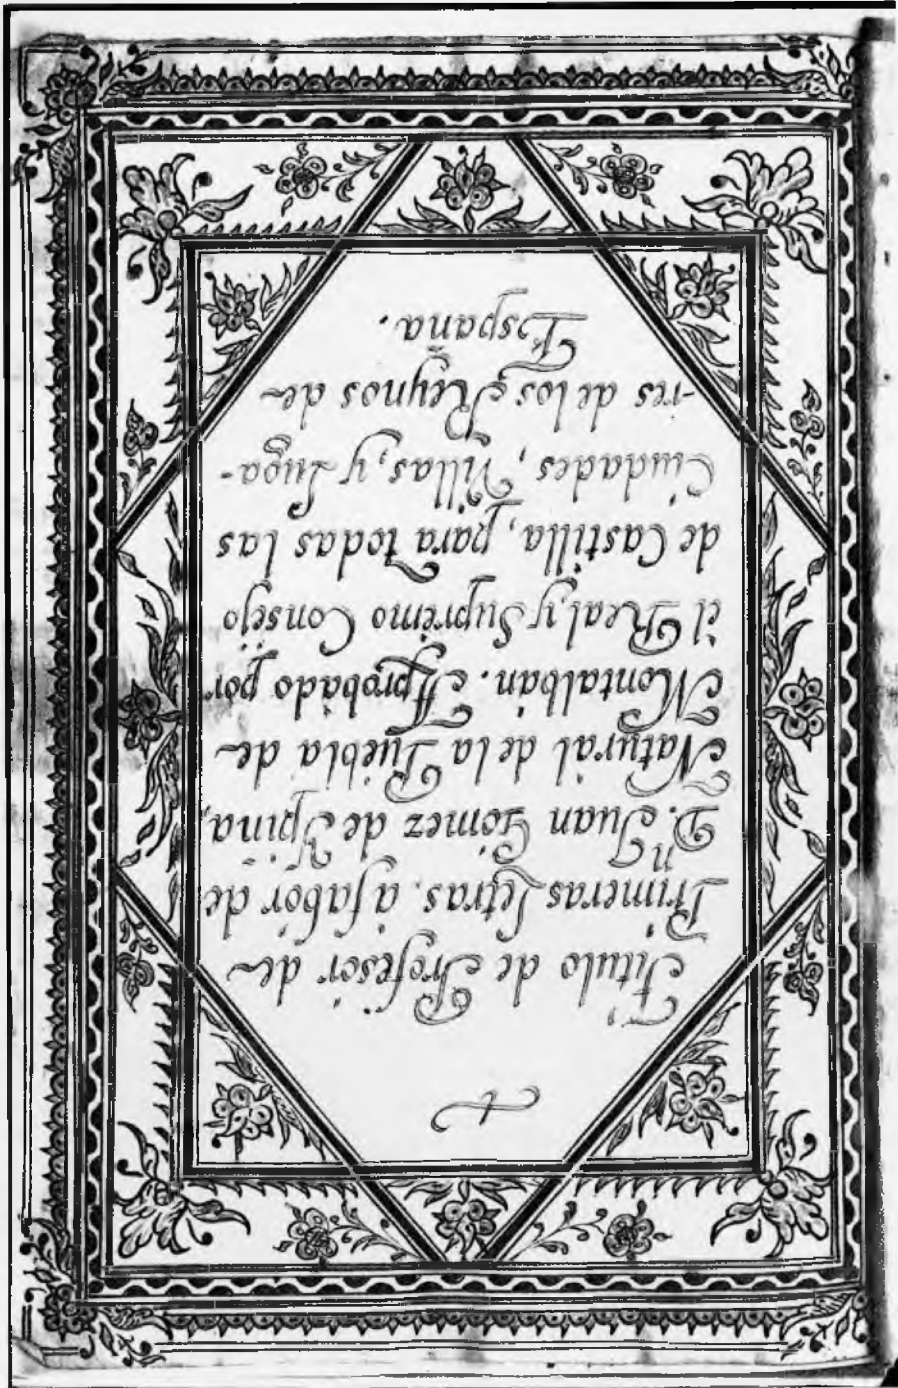 Titulo de Profesór de
Primeras letras. á fabór de
D.n Juan Gómez de
Naturàl de la Puèbla de
Montalbàn. Aprobàdo por
èl Real, y Suprèmo Consejo
de Castilla, para todas las
Ciudades, Villas, y Luga-
-res de los Reynos de
España.